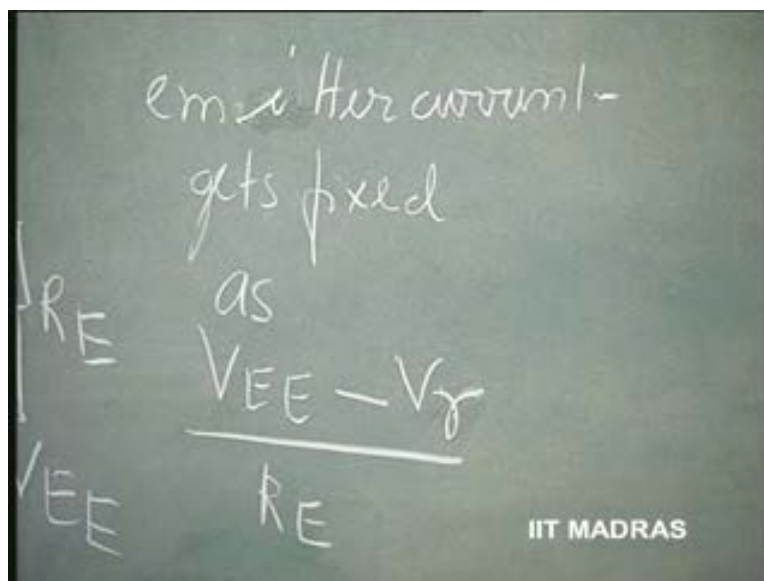 emitter current
gets fixed
as
V_EE - V_γ
R_E
R_E
V_EE
IIT MADRAS